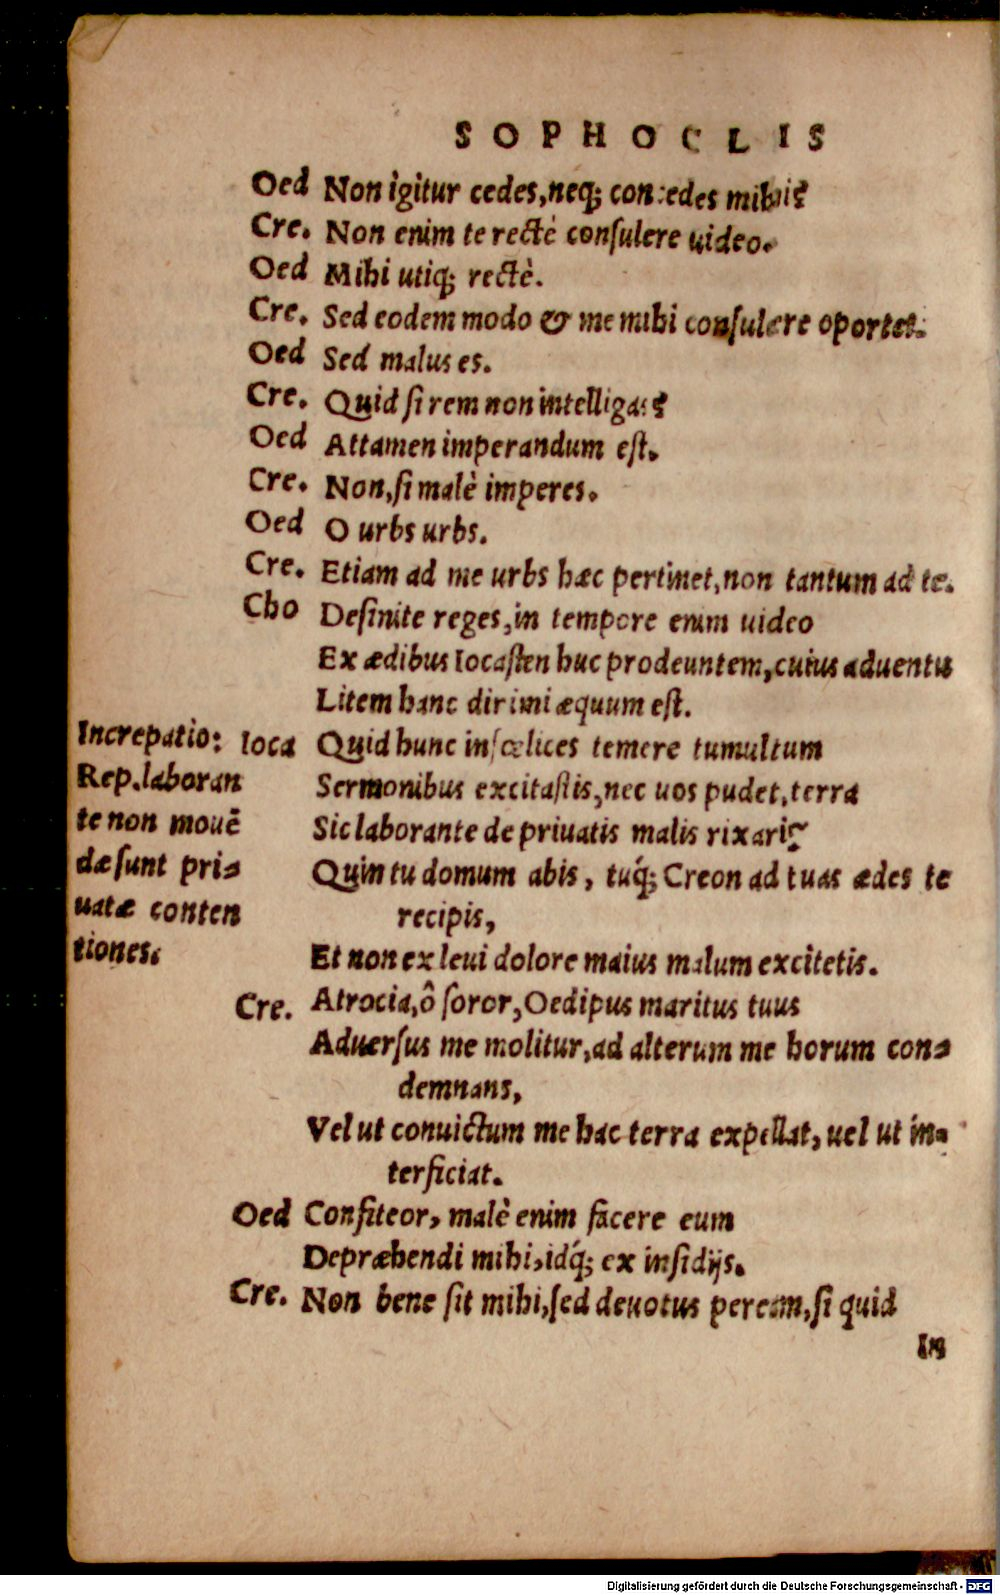 SOPHOCLIS
Oed Non igitur cedes, neq; concedes mihi?
Cre. Non enim te rectè conſulere uideo.
Oed Mihi utiq; rectè.
Cre. Sed eodem modo & me mihi conſulere oportet.
Oed Sed malus es.
Cre. Quid ſi rem non intelligas?
Oed Attamen imperandum eſt.
Cre. Non, ſi malè imperes.
Oed O urbs urbs.
Cre. Etiam ad me urbs hæc pertinet, non tantum ad te.
Cho Deſinite reges, in tempore enim uideo
Ex ædibus Iocaſten huc prodeuntem, cuius aduentu
Litem hanc dirimi æquum eſt.
Ioca Quid hunc infœlices temere tumultum
Sermonibus excitaſtis, nec uos pudet, terra
Sic laborante de priuatis malis rixari?
Quin tu domum abis, tuq́; Creon ad tuas ædes te
recipis,
Et non ex leui dolore maius malum excitetis.
Increpatio:
Rep. laboran
te non mouē
dæ ſunt pri⸗
uatæ conten
tiones.
Cre. Atrocia, ô ſoror, Oedipus maritus tuus
Aduerſus me molitur, ad alterum me horum con⸗
demnans,
Vel ut conuictum me hac terra expellat, uel ut in⸗
terficiat.
Oed Confiteor, malè enim facere eum
Depræhendi mihi, idq́; ex inſidijs.
Cre. Non bene ſit mihi, ſed deuotus peream, ſi quid
In
Digitalisierung gefördert durch die Deutsche Forschungsgemeinschaft - DFG